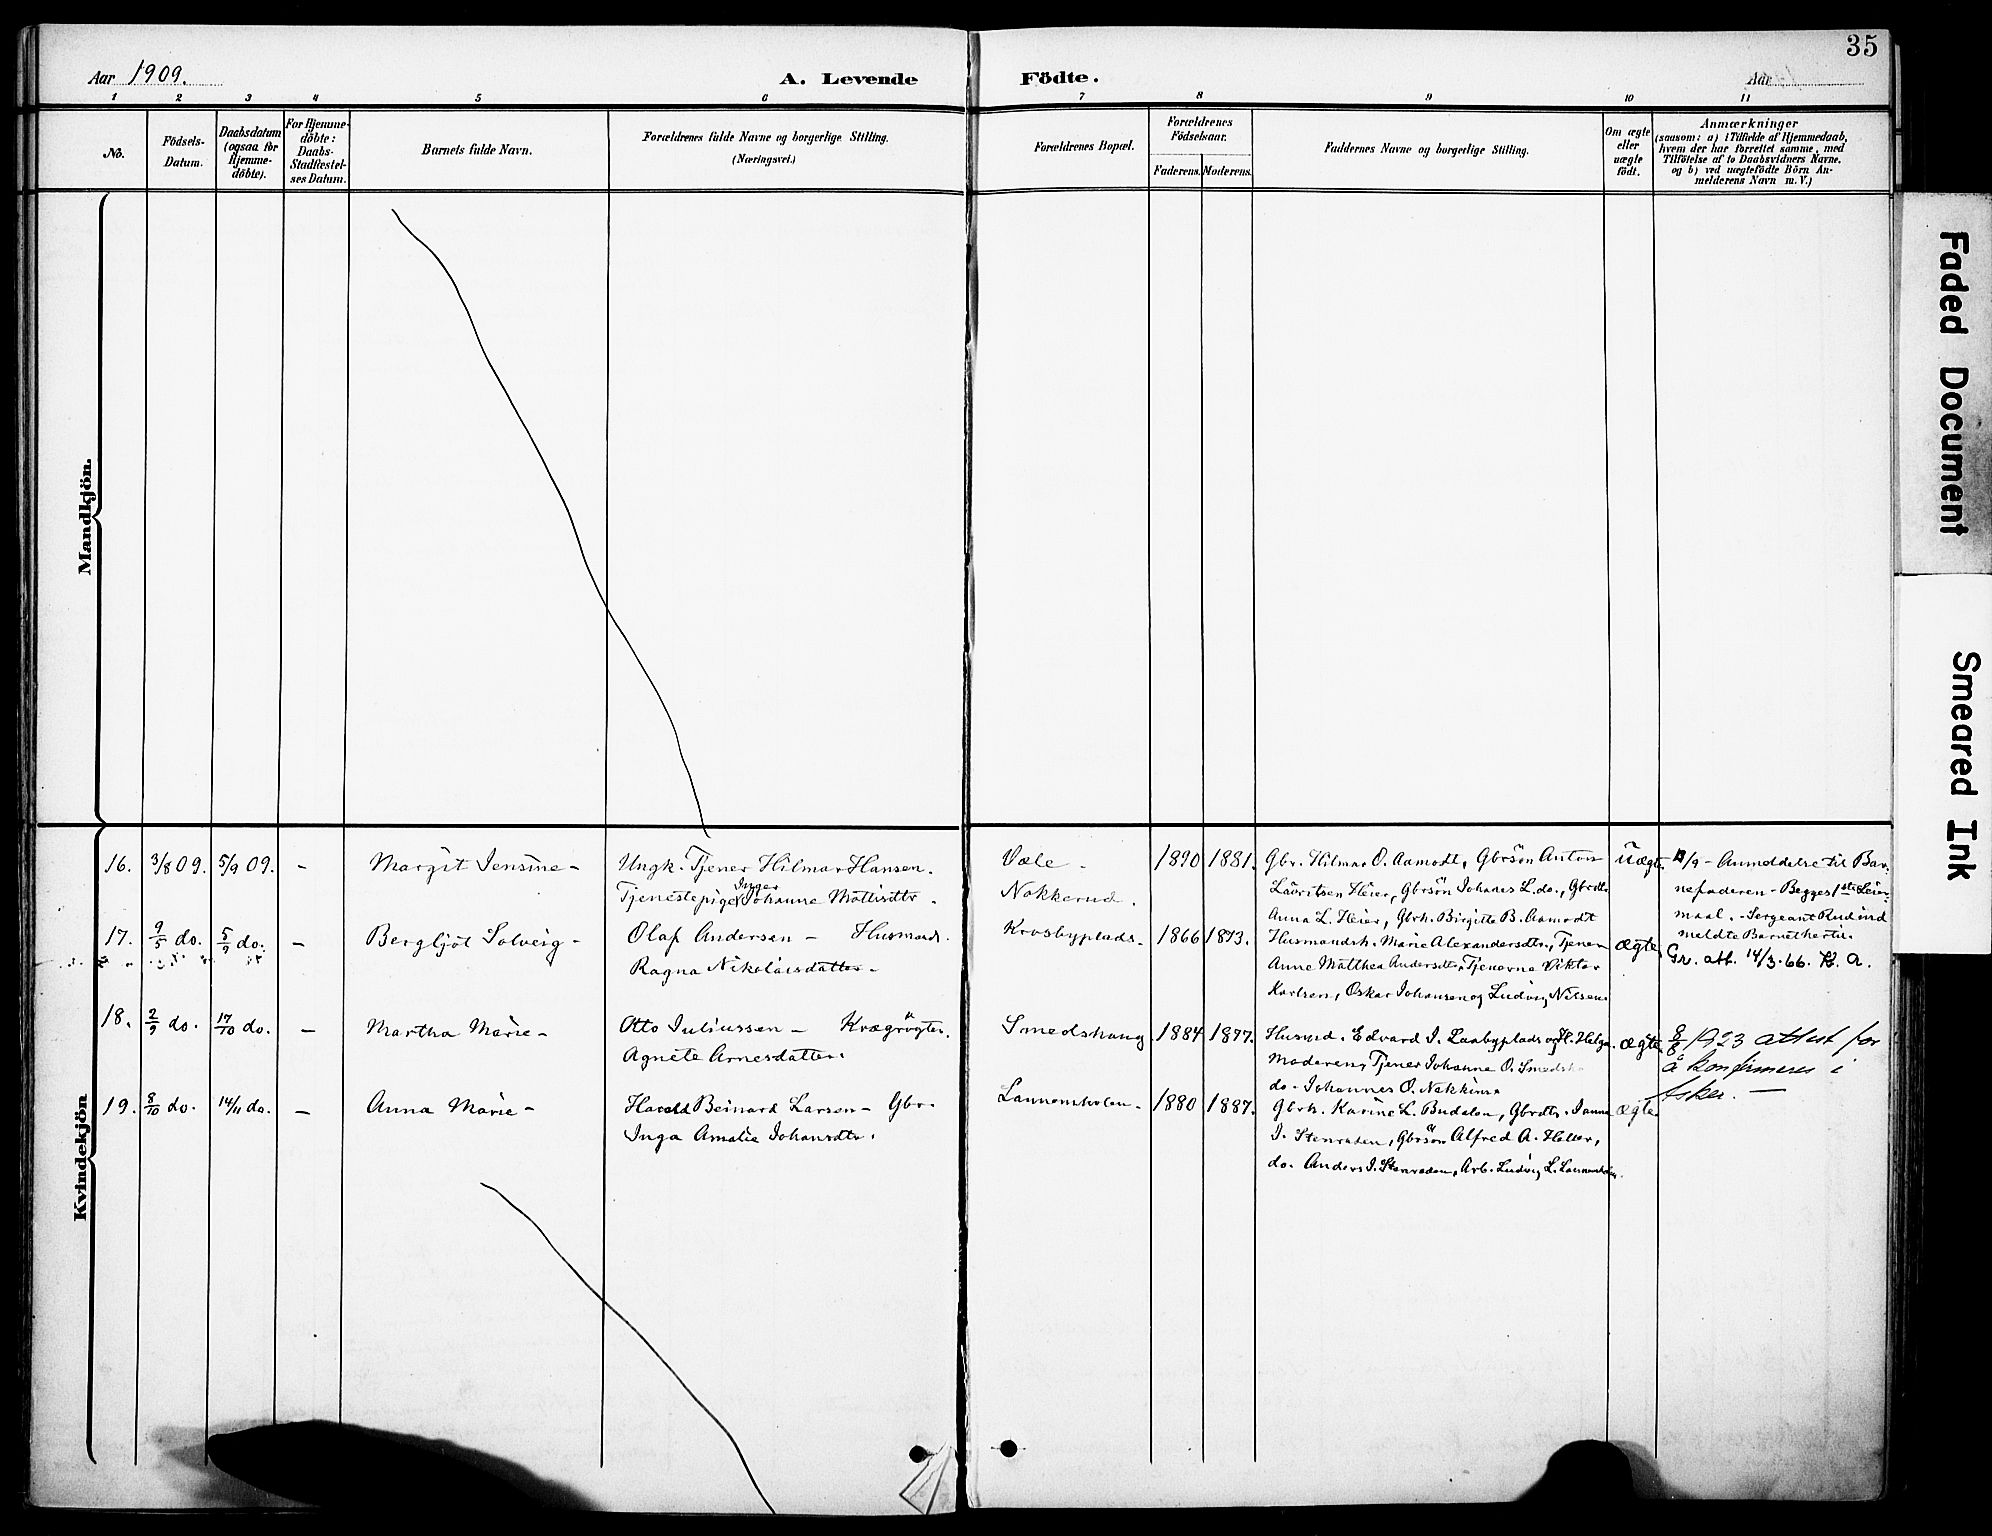 35
Aar 1909.
A. Levende
Födte.
Aar
1 2 3 4 5 6 7 8 9 10 11
No.
Födsels-
Datum.
Daabsdatum
(ogsaa for
Hjemme-
döbte).
For Hjemme-
döbte:
Daabs-
Stadfæstel-
ses Datum.
Barnets fulde Navn.
Forældrenes fulde Navne og borgerlige Stilling.
(Næringsvei.)
Forældrenes Bopæl.
Forældrenes
Födselsaar.
Faderens. Moderens.
Faddernes Navne og borgerlige Stilling.
Om ægte
eller
uægte
födt.
Anmærkninger
(saasom: a) i Tilfælde af Hjemmedaab,
hvem der har forrettet samme, med
Tilföielse af to Daabsvidners Navne.
og b) ved uægtefödte Börn An-
melderens Navn m. V.)
Mandkjön.
Kvindekjön
16. 3/8 09. 5/9 09. - Margit Jensine -
Ungk. Tjener Hilmar Hansen.
Inger
Tjenestepige Johanne Mattisdtr.
Væle -
Nakkerud.
1890 1881.
Gbr. Hilmar O. Aamodt, Gbrsön Anton
Lauritsen Heier, Gbrsön Johanes L. do., Gbrdtr.
Anna L. Heier, Gbrk. Birgitte B. Aamodt
Uægte
/9 - Anmeldelse til Bar-
nefaderen - Begges 1ste Leier-
maal. - Sergeant Rud ind
meldte Barnet hertil.
17. 9/5 do. 5/9 do. - Bergljót Solveig -
Olaf Andersen - Husmand.
Ragna Nikolaisdatter -
Krosbyplads. 1866 1873.
Husmandsk. Marie Alexandersdtr., Tjener
Anne Matthea Andersdtr., Tjenerne Viktor
Karlsen, Oskar Johansen og Ludvig Nilsen.
ægte
Gr. att. 14/3.66. K. A.
18. 2/9 do. 17/10 do. - Martha Marie -
Otto Juliussen - Krægrögter.
Agnete Arnesdatter.
Smedshaug. 1884 1877.
Husmd. Edvard I. Laabyplads og H. Helga.
Moderen, Tjener Johanne O. Smedsh
do. Johannes O. Nakkerud
ægte.
8/8 1923 attest for
å konfirmeres i
Asker. -
19. 8/10 do. 14/11 do. - Anna Marie -
Harald Beinard Larsen - Gbr.
Inga Amalie Johansdtr.
Lannemholen. 1880 1887.
Gbrk. Karine L. Budalen, Gbrdtr. Janna
I. Stenraden, Gbrsön Alfred A. Heller,
do. Anders I. Stenraden, Arb. Ludvig L. Lannemholen.
ægte
Faded Document
Smeared Ink